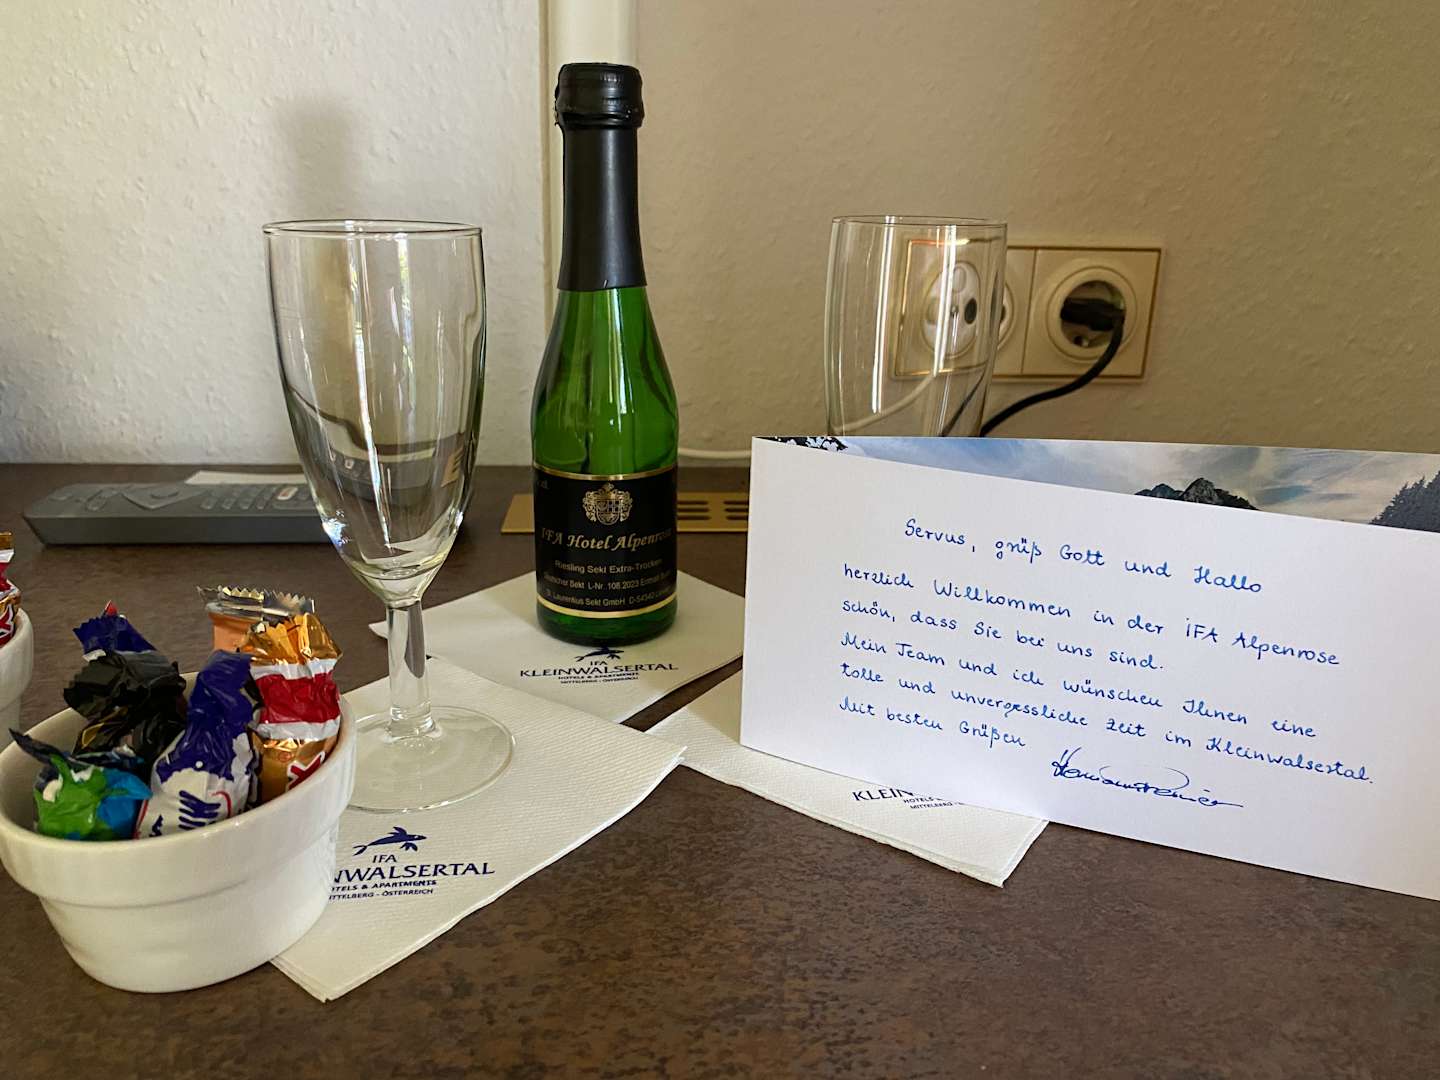 IFA Hotel Alpenrose
Riesling Sekt Extra-Trocken
Deutscher Sekt L-Nr. 108 2023
St. Laurentius Sekt GmbH D-54340
IFA
KLEINWALSERTAL
HOTELS & APARTMENTS
MITTELBERG - ÖSTERREICH
Servus, grüß Gott und Hallo
herzlich Willkommen in der IFA Alpenrose
schön, dass Sie bei uns sind.
Mein Team und ich wünschen Ihnen eine
tolle und unvergessliche Zeit im Kleinwalsertal.
Mit besten Grüßen
KLEIN
HOTELS
MITTELBERG
IFA
NWALSERTAL
OTELS & APARTMENTS
ITTELBERG - ÖSTERREICH